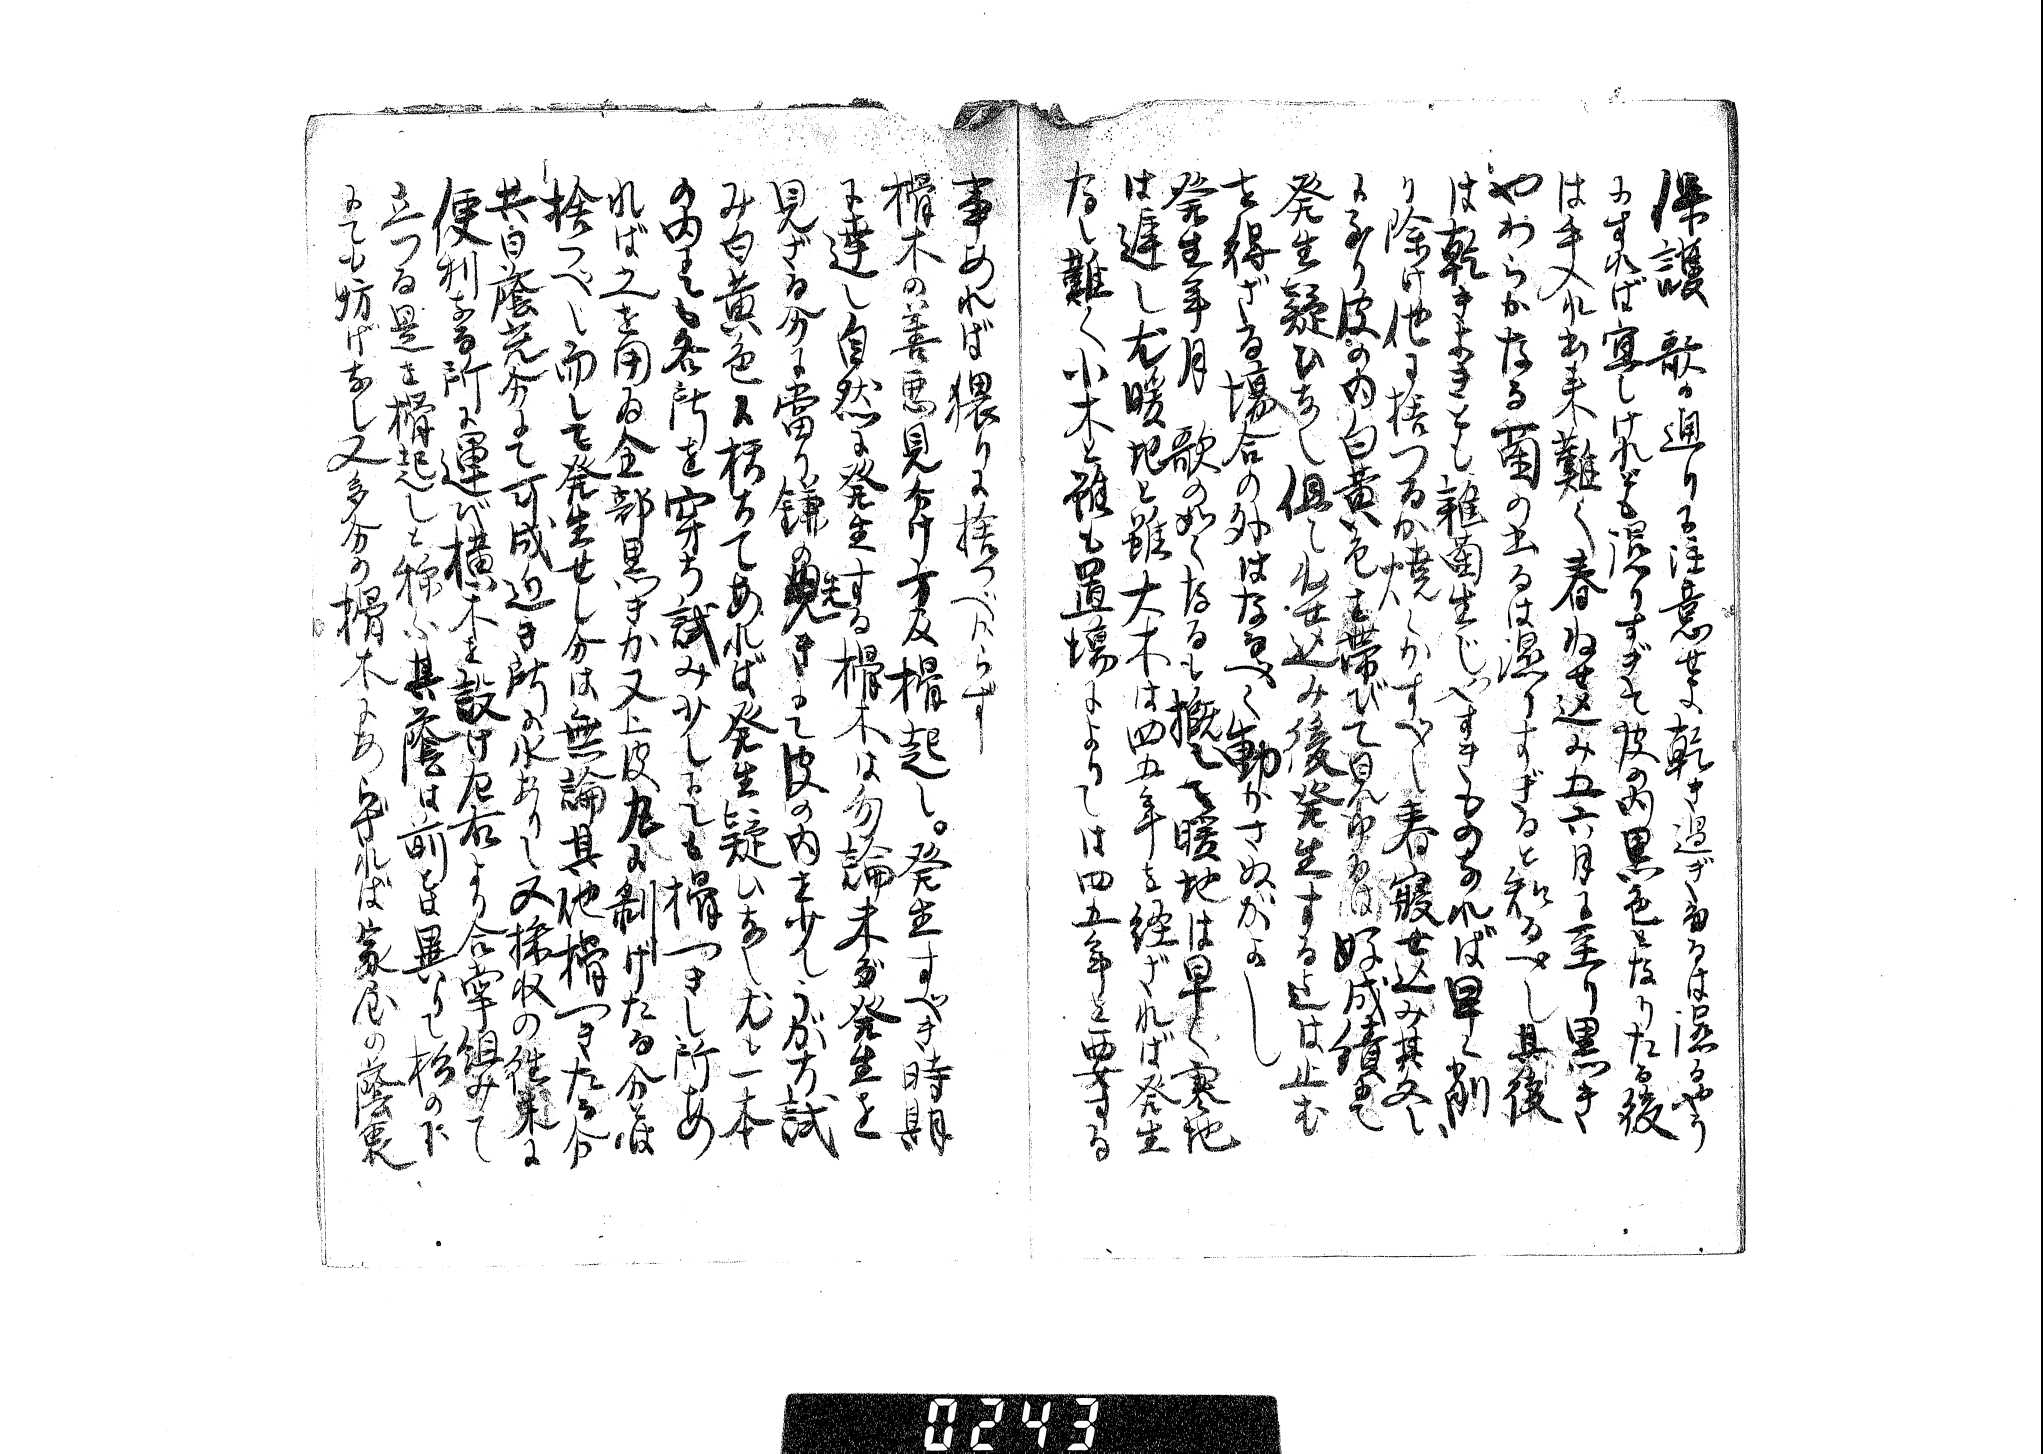 保護 歌の通りに注意せよ乾き過ぎるは湿るやう
にすれば宜しけれども湿りすぎて皮の内黒色となりたる後
は手入れ出来難く春ねせ込み五六月に至り黒きき
やわらかなる菌の出るは湿りすぎると知るべし其後
は乾きよきとも雑菌生じやすきものなれば早く削
り除け他に捨つるか焼くかすべし春寝せ込み其冬に
至り皮の内白黄色を帯びて見ゆるは好成績にて
発生疑ひなし但しねせ込み後発生する迄は止む
を得ざる場合の外はなるべく動かさぬがよし
発生年月 歌の如くなるも概して暖地は早く寒地
は遅し尤暖地と雖大木は四五年を経ざれば発生
なし難く小木と雖も置場によりては四五年を要する
事あれば猥りに捨つべからず
榾木の善悪見分け方及榾起し。発生すべき時期
に達し自然に発生する榾木は勿論未だ発生を
見ざる分に當り鎌の先きにて皮の内を少しうがち試
み白黄色に揃ちてあれば発生疑ひなし尤も一本
の内にても各所を穿ち試み少しにても榾つきし所あ
れば之を用ゐ全部黒きか又上皮丸に剥げたる分は
捨つべし而して発生せし分は無論其他榾つきたる分
共日蔭充分にて可成近き所に水ありし又採収の往来に
便利なる所に運び横木を設け左右より合掌組みて
立つる是を榾起しと称ふ其蔭は前とは異りて松の下
にても妨げなし又多分の榾木にあらざれば家屋の蔭裏
0243